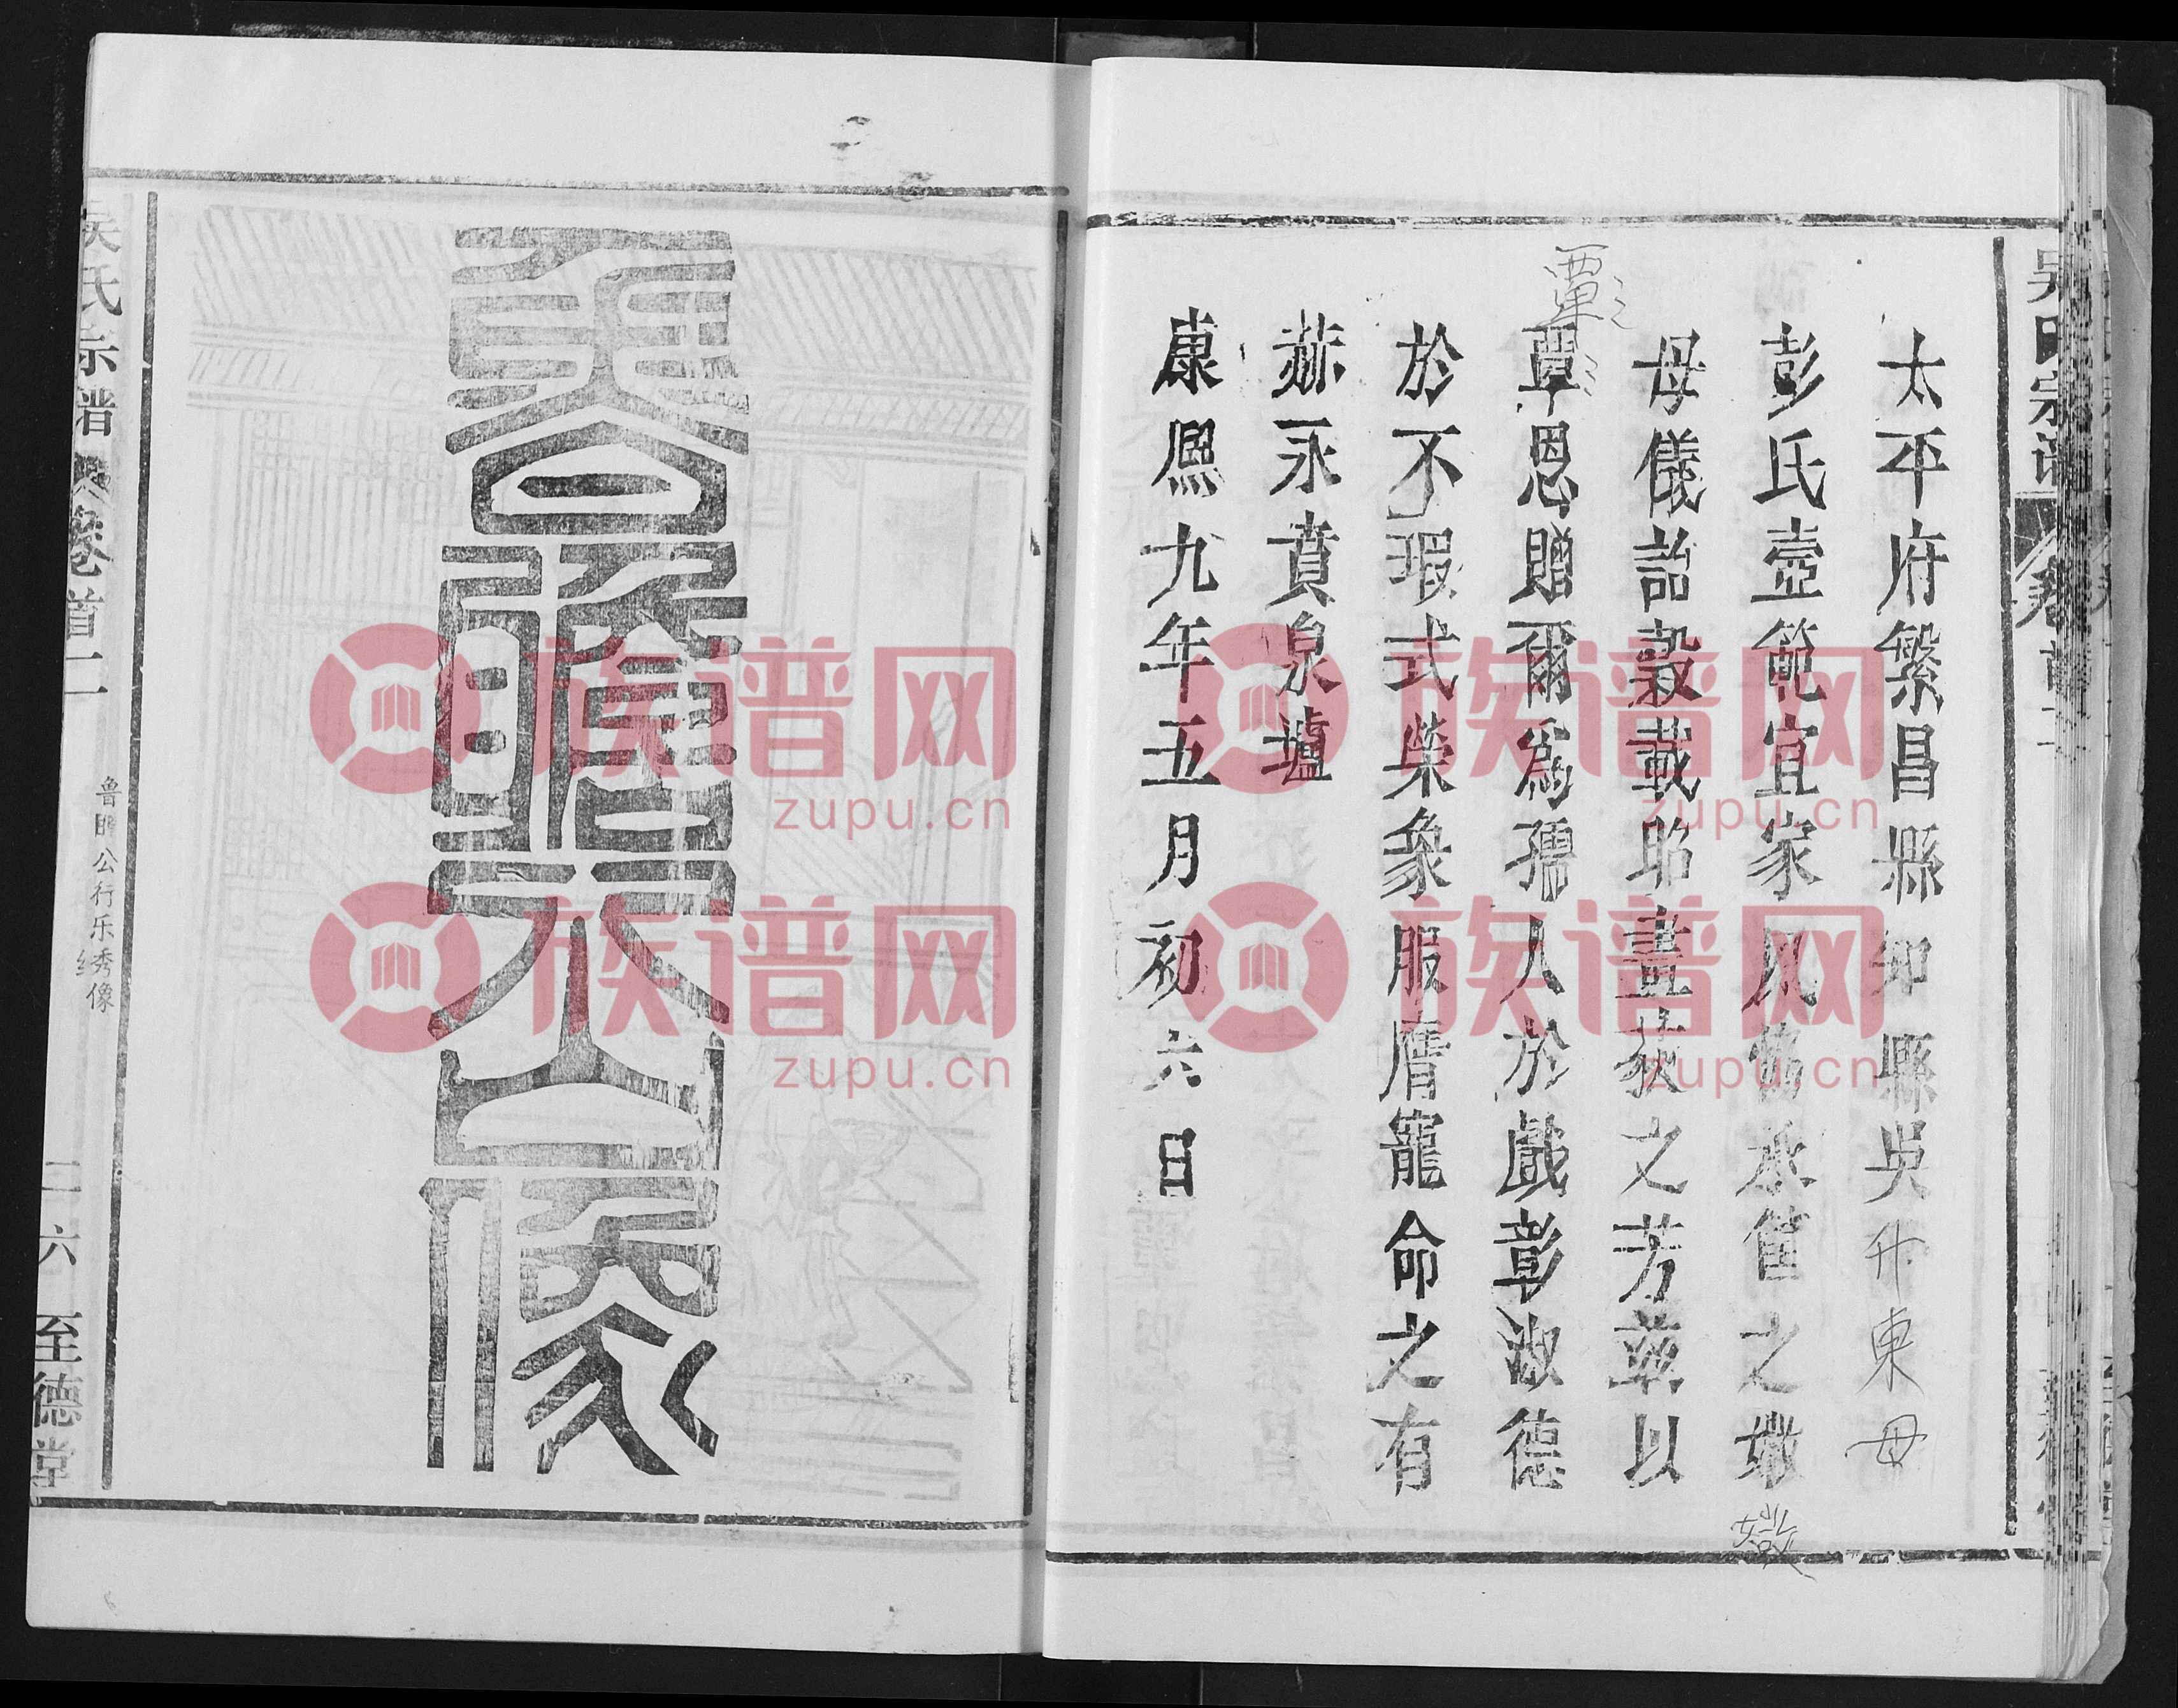 太平府繁昌縣知縣吳升東母
彭氏壼範宜家夙儀承筐之媺
母儀詒穀載昭畫荻之芳茲以
覃恩贈爾爲孺人於戲彰淑德
於不瑕式榮象服膺寵命之有
赫永賁泉壚
康熙九年五月初六日
覃
吴氏宗谱 卷首二
魯瞻公像
吴氏宗谱 卷首二 鲁瞻公行乐绣像 二六 至德堂
族谱网
zupu.cn
族谱网
zupu.cn
族谱网
zupu.cn
族谱网
zupu.cn